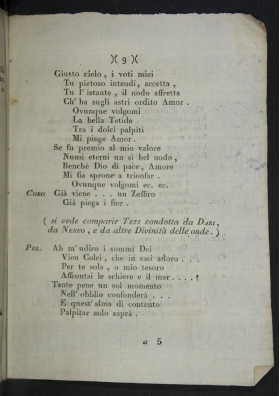 )( 9 )(
Giusto cielo, i voti miei
Tu pietoso intendi, accetta,
Tu l'istante, il nodo affretta
Ch' ha sugli astri ordito Amor.
Ovunque volgomi
La bella Tetide
Tra i dolci palpiti
Mi pinge Amor.
Se fu premio al mio valore
Numi eterni un sì bel nodo,
Benchè Dio di pace, Amore
Mi fia sprone a trionfar.
Ovunque volgomi ec. ec.
CORO Già viene . . . un Zeffiro
Già piega i fior.
( si vede comparir TETI condotta da DARI,
da NEREO, e da altre Divinità delle onde. )
PEL. Ah m'udiro i sommi Dei
Vien Colei, che in essi adoro . . .
Per te sola, o mio tesoro
Affrontai le schiere e il mar . . . . !
Tante pene un sol momento
Nell' obblio confonderà . . .
E quest'alma di contento
Palpitar solo saprà.
a 5